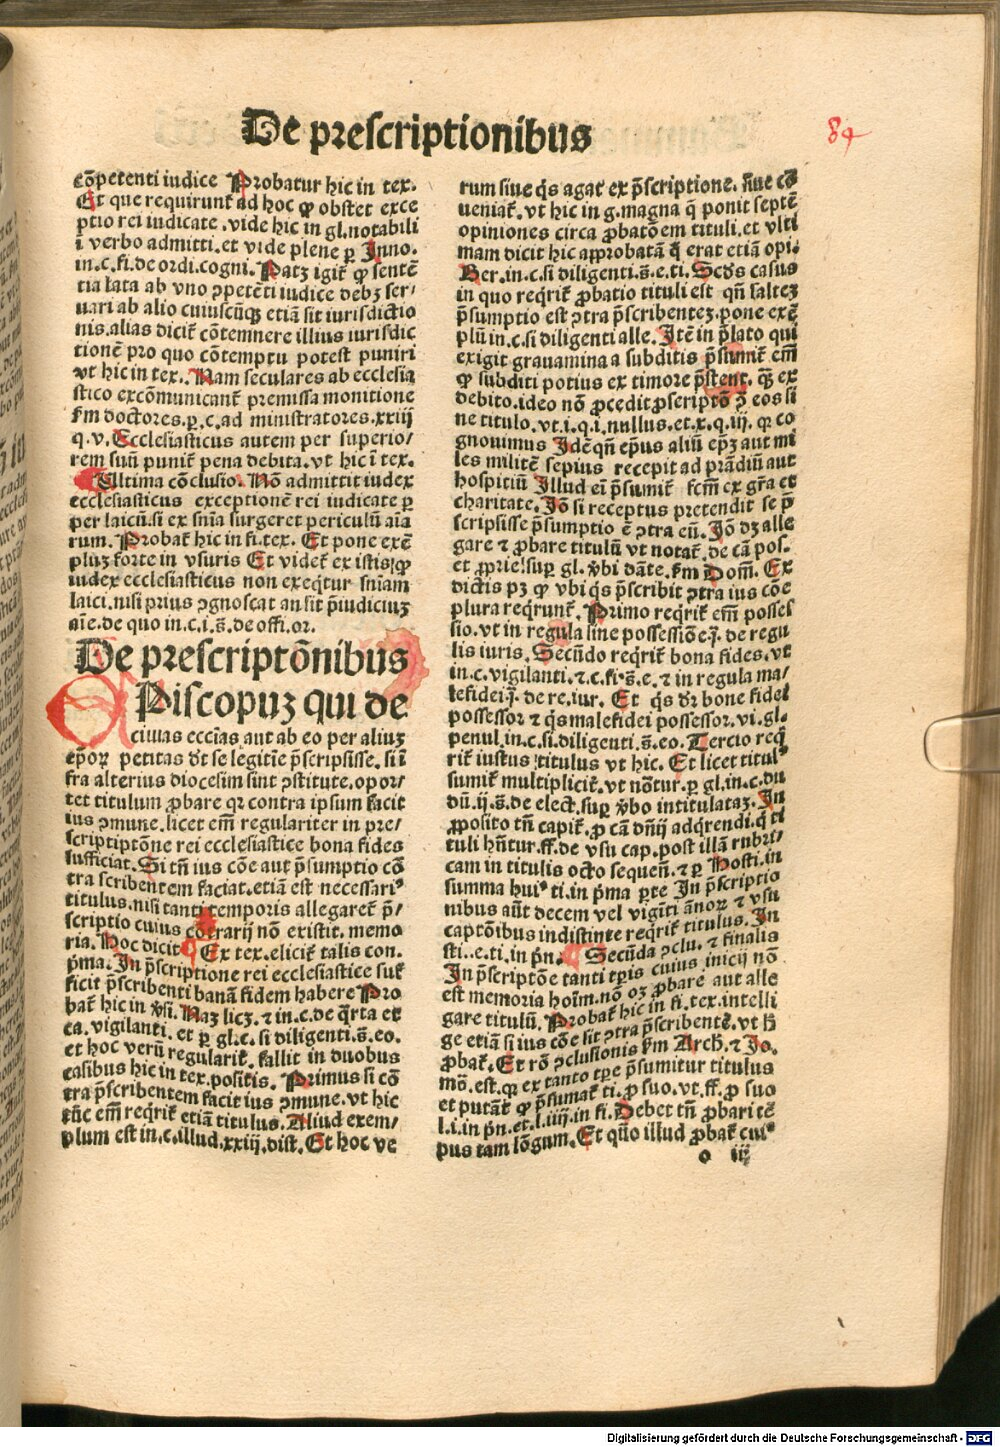 De prescriptionibus
84
cõpetenti iudice Probatur hic in tex.
Et que requirunt̃ ad hoc ꝙ obstet exce
ptio rei iudicate .vide hic in gl.notabili
ĩ verbo admitti.et vide plene ꝑ Inno.
in.c.fi.de ordi.cogni. Patꝫ igit̃ ꝙ sentẽ
tia lata ab vno ꝯpetẽti iudice debꝫ ser/
uari ab alio cuiuscũqꝫ etiã sit iurisdictio
nis.alias dicit̃ cõtemnere illius iurisdic
tionẽ pro quo cõtemptu potest puniri
vt hic in tex. Nam seculares ab ecclesia
stico excõmunicant̃ premissa monitione
ẜm doctores.ꝑ.c.ad ministratores.xxiij
q.v. Ecclesiasticus autem per superio/
rem suũ punit̃ pena debita.vt hic ĩ tex.
Ultima cõclusio. Nõ admittit iudex
ecclesiasticus exceptionẽ rei iudicate ꝑ
per laicũ.si ex snĩa surgeret periculũ aĩa
rum. Probat̃ hic in fi.tex. Et pone exẽ
pluꝫ forte in vsuris Et videt̃ ex istis ꝙ
iudex ecclesiasticus non exeq̃tur snĩam
laici.nisi prius ꝯgnoscat an sit p̃iudiciuꝫ
aĩe.de quo in.c.i.s̃.de offi.or.
De prescriptõnibus
EPiscopuꝫ qui de
ciuias eccĩas aut ab eo per aliuꝫ
ep̃oꝝ petitas d̃t se legitĩe p̃scripsisse. si ĩ
fra alterius diocesim sint ꝯstitute.opor/
tet titulum ꝓbare qꝛ contra ipsum facit
ius ꝯmune.licet em̃ regulariter in pre/
scriptiptõne rei ecclesiastice bona fides
sufficiat. Si tñ ius cõe aut p̃sumptio cõ
tra scribentem faciat.etiã est necessari⁹
titulus.nisi tanti temporis allegaret̃ p̃/
scriptio cuius cõtrarij nõ existit. memo
ria. Hoc dicit Ex tex.elicit̃ talis con.
p̃ma. In p̃scriptione rei ecclesiastice suf
ficit p̃scribenti banã fidem habere Pro
bat̃ hic in ꝟsi. Naꝫ licꝫ. ⁊ in.c.de q̃rta et
ca.vigilanti. et ꝑ gl.c.si diligenti.s̃.eo.
et hoc verũ regularit̃. fallit in duobus
casibus hic in tex.positis. Primus si cõ
tra p̃scribentem facit ius ꝯmune.vt hic
tũc em̃ req̃rit̃ etiã titulus. Aliud exem/
plum est in.c.illud.xxiij.dist. Et hoc ve
rum siue q̃s agat ex p̃scriptione. siue cõ
ueniat̃.vt hic in g.magna q̃ ponit septẽ
opiniones circa ꝓbatõem tituli.et vlti
mam dicit hic approbatã q̃ erat etiã opi.
Ber.in.c.si diligenti.s̃.e.ti. Sc̃ds casus
in quo req̃rit̃ ꝓbatio tituli est qñ salteꝫ
p̃sumptio est ꝯtra p̃scribenteꝫ.pone exẽ
plũ in.c.si diligenti alle. Itẽ in p̃lato qui
exigit grauamina a subditis p̃sumit̃ em̃
ꝙ subditi potius ex timore p̃stent. q̃ꝫ ex
debito.ideo nõ ꝓcedit ꝓscriptõ ꝯ̃ eos si
ne titulo.vt.i.q.i.nullus.et.x.q.iij. ꝙ co
gnouimus Idẽ qñ ep̃us aliũ ep̃ꝫ aut mi
les militẽ sepius recepit ad prãdiũ aut
hospitiũ Illud eĩ p̃sumit̃ fcm̃ ex gr̃a et
charitate. Iõ si receptus pretendit se p̃
scripsisse p̃sumptio ẽ ꝯtra eũ. Iõ dꝫ alle
gare ⁊ ꝓbare titulũ vt notat̃.de cã pos.
et ꝓprie.suꝑ gl. ꝟbi dãte.ẜm Dom̃. Ex
dictis pꝫ ꝙ vbi q̃s p̃scribit ꝯtra ius cõe
plura req̃runt̃. Primo req̃rit̃ em̃ posses
sio.vt in regula sine possessiõe.j̃. de regu
lis iuris. Secũdo req̃rit̃ bona fides.vt
in.c.vigilanti.⁊.c.fi.s̃.e.⁊ in regula ma/
lefidei.j̃.de re.iur. Et q̃s d̃r bone fidei
possessor ⁊ q̃s malefidei possessor.vi.gl.
penul.in.c.si.diligenti.s̃.eo. Tercio req̃
rit̃ iustus titulus vt hic. Et licet titul⁹
sumit̃ multiplicit̃.vt nõtur.ꝑ gl.in.c.du
dũ.ij.s̃.de elect̃.suꝑ ꝟbo intitulataꝫ. In
ꝓposito tñ capit̃.ꝓ cã dñij adq̃rendi.q̃ ti
tuli hñtur.ff.de vsu cap.post illã rubri/
cam in titulis octo sequeñ.⁊ ꝑ Hosti.in
summa hui⁹ ti.in p̃ma ꝑte In p̃scriptio
nibus aũt decem vel vigĩti ãnoꝝ ⁊ vsu
captõibus indistĩnte req̃rit̃ titulus. In
sti..e.ti.in p̃n. Secũda ꝯclu. ⁊ finalis
In p̃scriptõe tanti tꝑis cuius inicij nõ
est memoria hoĩm.nõ oꝫ ꝓbare aut alle
gare titulũ. Probat̃ hic in fi.tex.intelli
ge etiã si ius cõe sit ꝯtra p̃scribentẽ.vt h̃
ꝓbat̃. Et rõ ꝯclusionis ẜm Arch̃.⁊ Jo.
mõ.est.qꝛ ex tanto tꝑe p̃sumitur titulus
et putat̃ ꝙ p̃sumat̃ ti.ꝓ suo.vt.ff.ꝓ suo
l.i.in p̃n.et.l.iiij.in fi. Debet tñ ꝓbari tẽ
pus tam lõgum. Et quõ illud ꝓbat̃ cui⁹
o iij
Digitalisierung gefördert durch die Deutsche Forschungsgemeinschaft - DFG